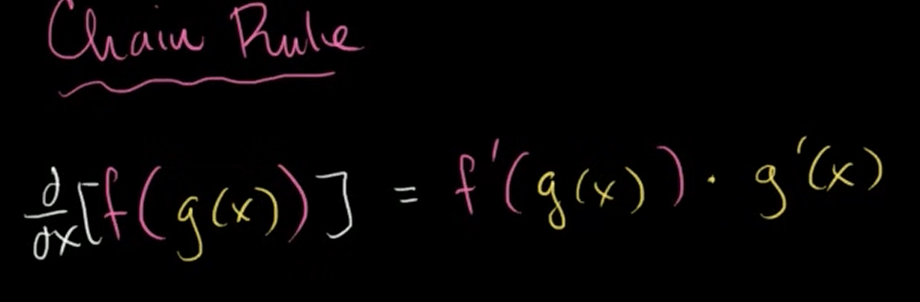 Chain Rule
d/dx[f(g(x))] = f'(g(x)) · g'(x)